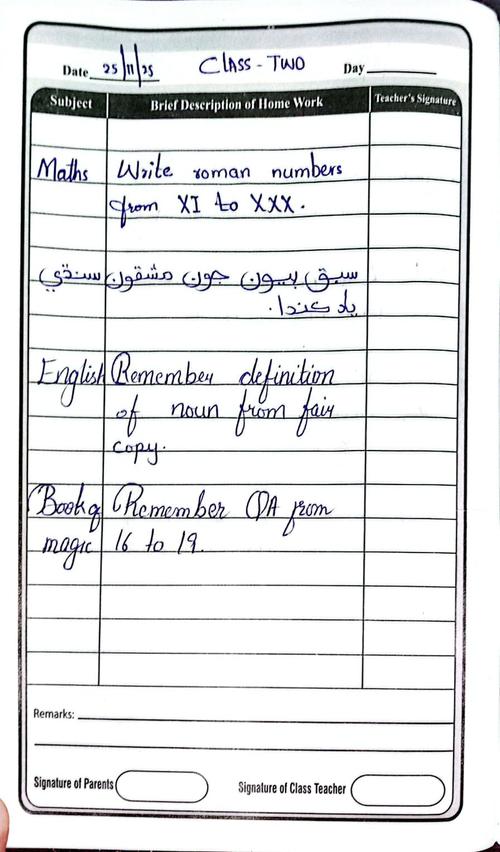 Date 25/11/25 CLASS - TWO Day
Subject Brief Description of Home Work Teacher's Signature
Maths Write roman numbers
from XI to XXX.
سنڌي سبق ٻيون جون مشقون
ياد ڪندا.
English Remember definition
of noun from fair
copy.
Book of Remember QA from
magic 16 to 19.
Remarks:
Signature of Parents Signature of Class Teacher